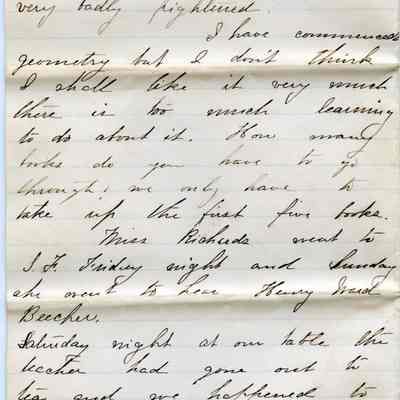 very badly frightened.
I have commenced
geometry but I don't think
I shall like it very much
there is too much learning
to do about it. How many
books do you have to go
through? we only have to
take up the first five books.
Miss Richards went to
S. F. Friday night and Sunday
she went to hear Henry Ward
Beecher.
Saturday night at our table the
teacher had gone out to
tea and we happened to